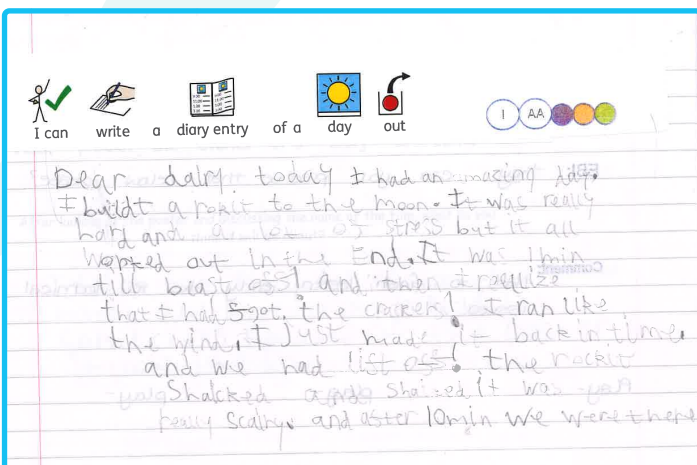 I can write a diary entry of a day out
I AA
Dear dairy today I had an mazing day.
I buildt a rokit to the moon. It was really
hard and a lot of stress but it all
worked out in the End. It was 1min
till blast off! and then I reqlize
that I had fgot. the crackers! I ran like
the wind. I just made it back in time.
and we had lift off! the rockit
Shalcked and Shaized it was
really scalry. and after 10min we were there